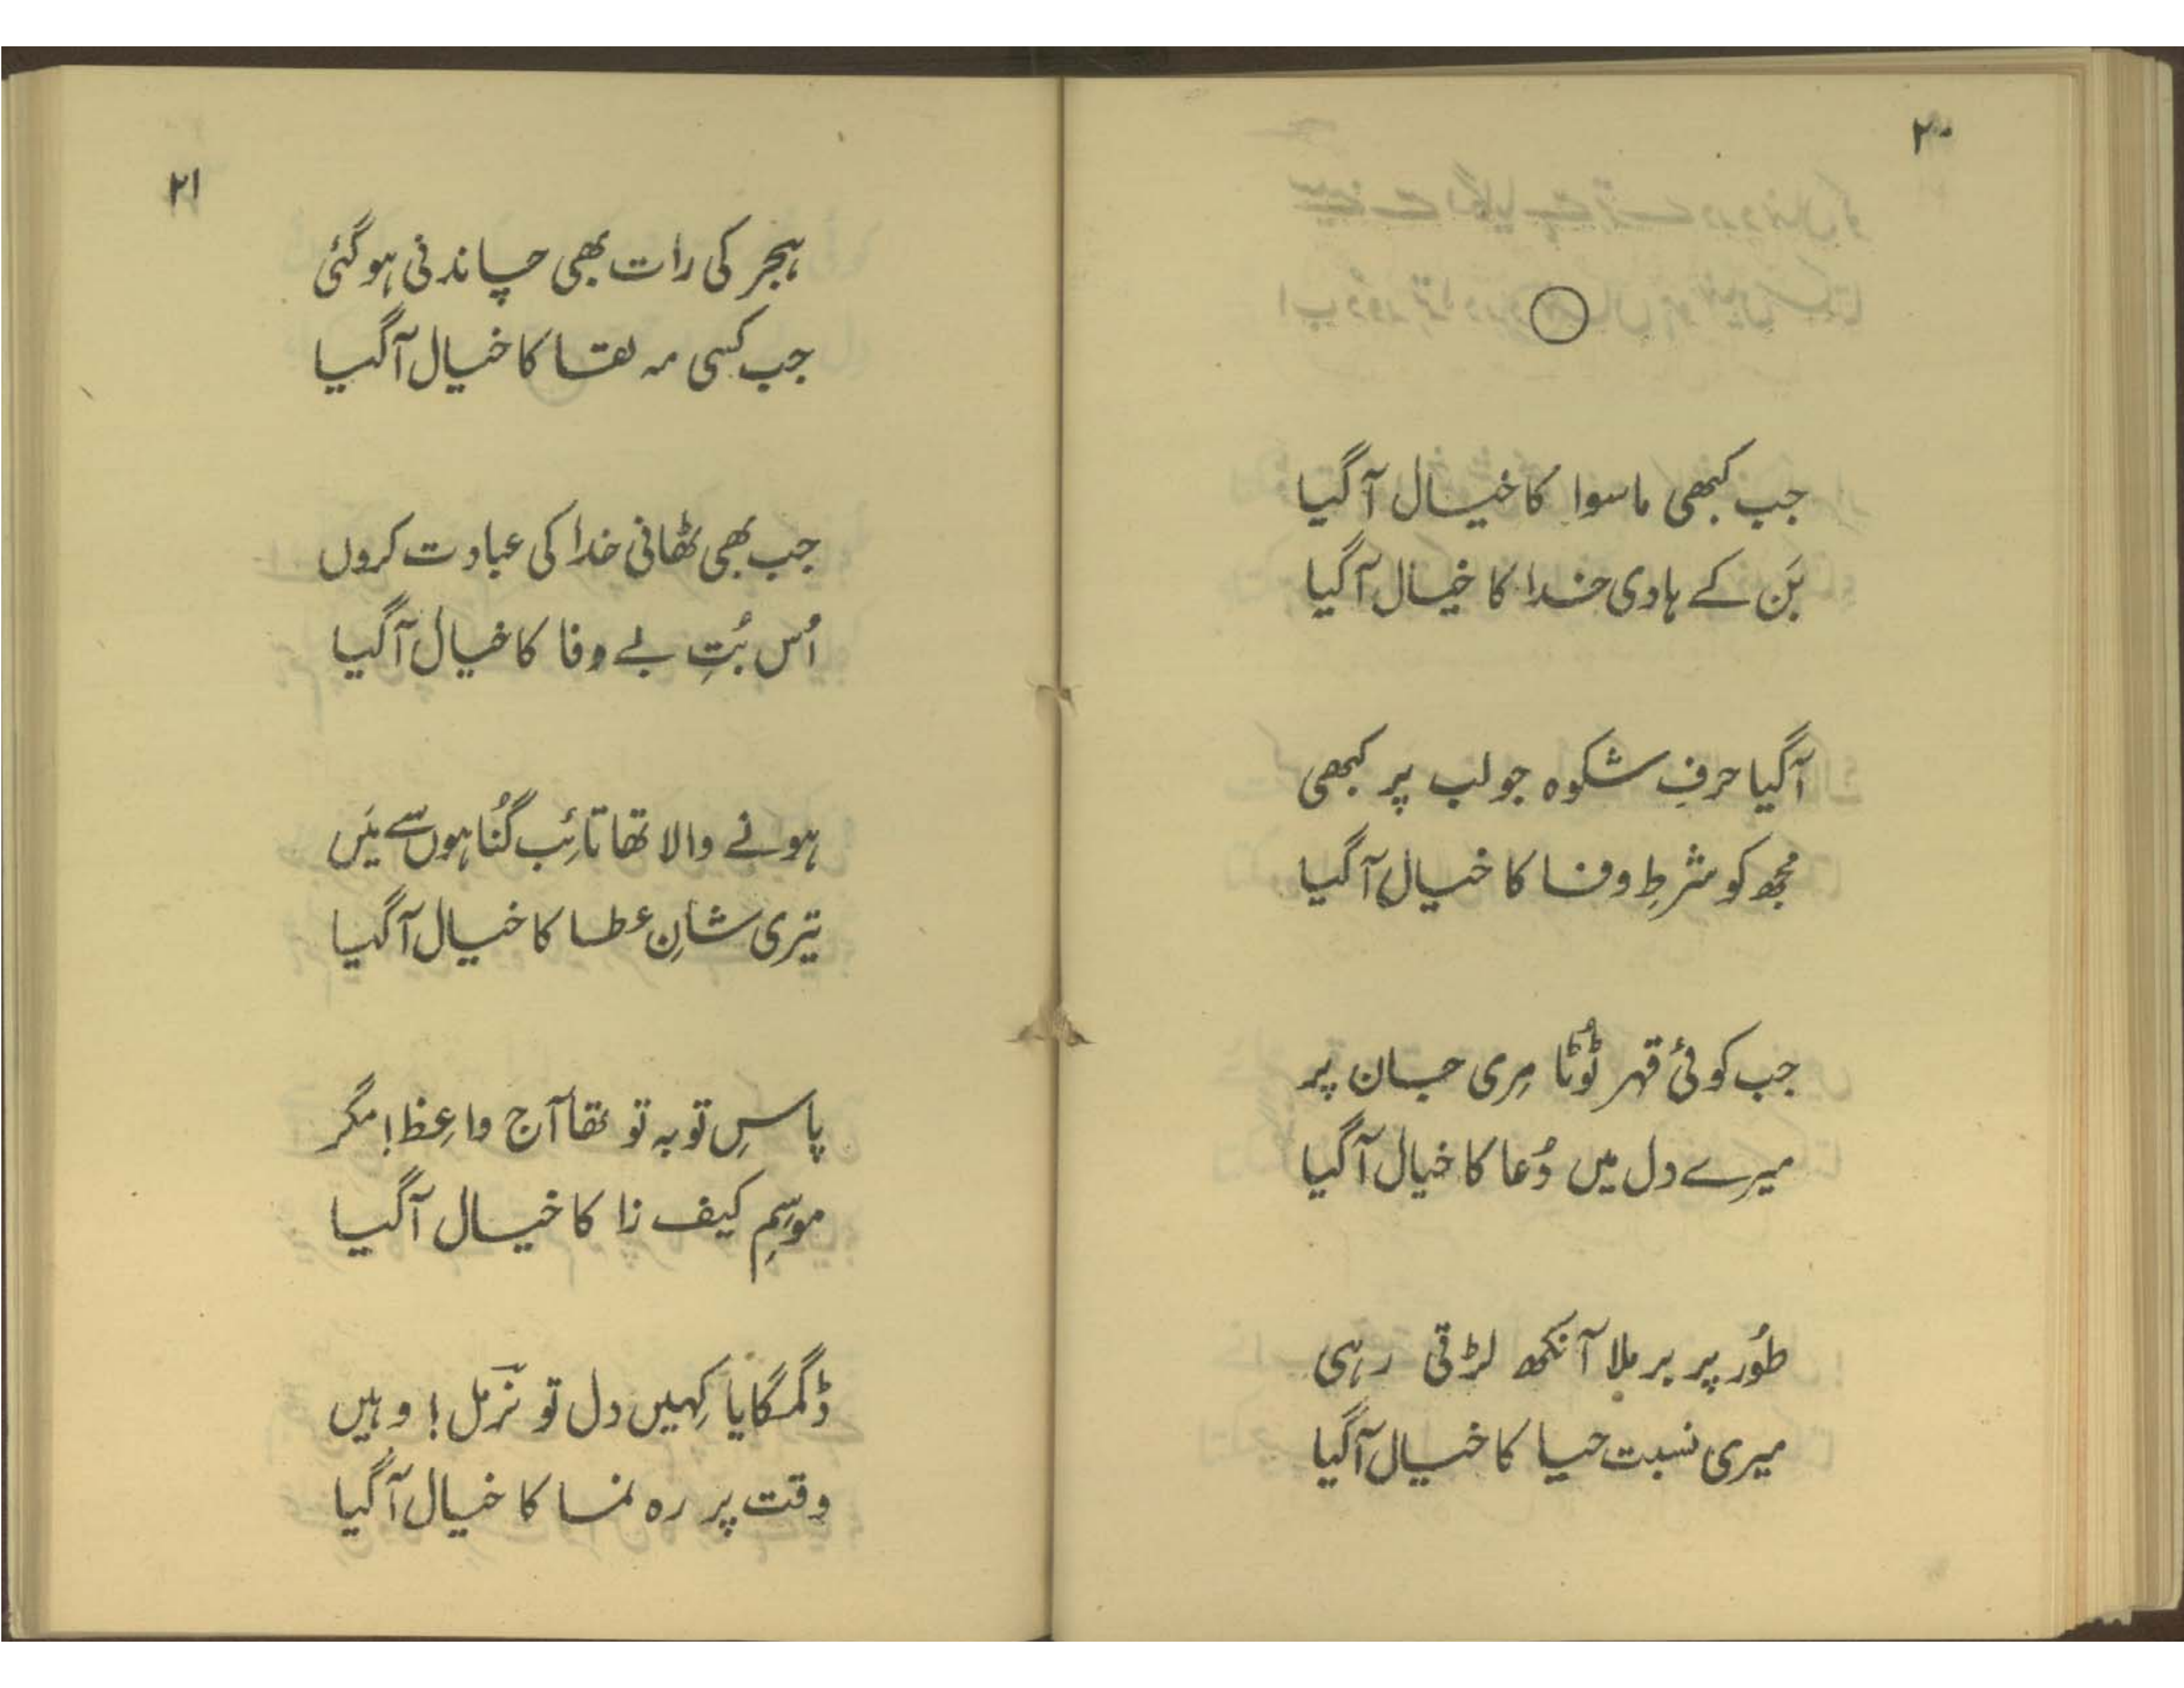 ۲۰
جب کبھی ماسوا کا خیال آگیا
بَن کے ہادی خدا کا خیال آگیا
آگیا حرفِ شکوہ جو لب پر کبھی
مجھ کو شرطِ وفا کا خیال آگیا
جب کوئی قہر ٹوُٹا مِری جان پر
میرے دل میں دُعا کا خیال آگیا
طوُر پر برملا آنکھ لڑتی رہی
میری نسبت حیا کا خیال آگیا
۲۱
ہجر کی رات بھی چاندنی ہوگئی
جب کسی مہ لقا کا خیال آگیا
جب بھی ٹھانی خدا کی عبادت کروں
اُس بُتِ بے وفا کا خیال آگیا
ہونے والا تھا تائِب گُناہوں سے مَیں
تیری شانِ عطا کا خیال آگیا
پاسِ توبہ تو تھا آج واعِظ! مگر
موسِمِ کیف زا کا خیال آگیا
ڈگمگایا کہِیں دل تو نرمل! وہیں
وقت پر رہ نما کا خیال آگیا